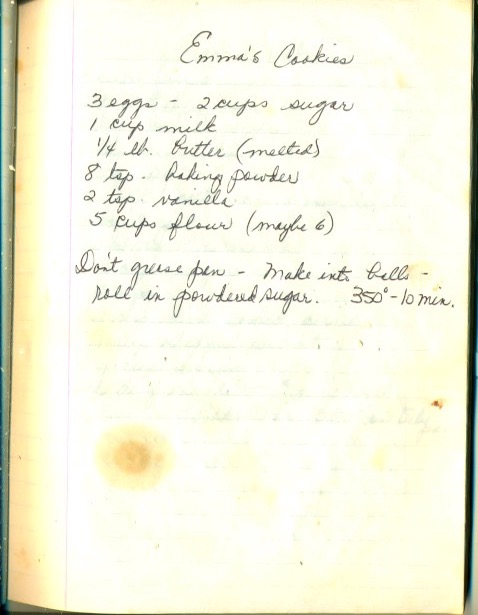 Emma's Cookies
3 eggs - 2 cups sugar
1 cup milk
1/4 lb. butter (melted)
8 tsp. baking powder
2 tsp vanilla
5 cups flour (maybe 6)
Don't grease pan - Make into balls -
roll in powdered sugar. 350° - 10 min.